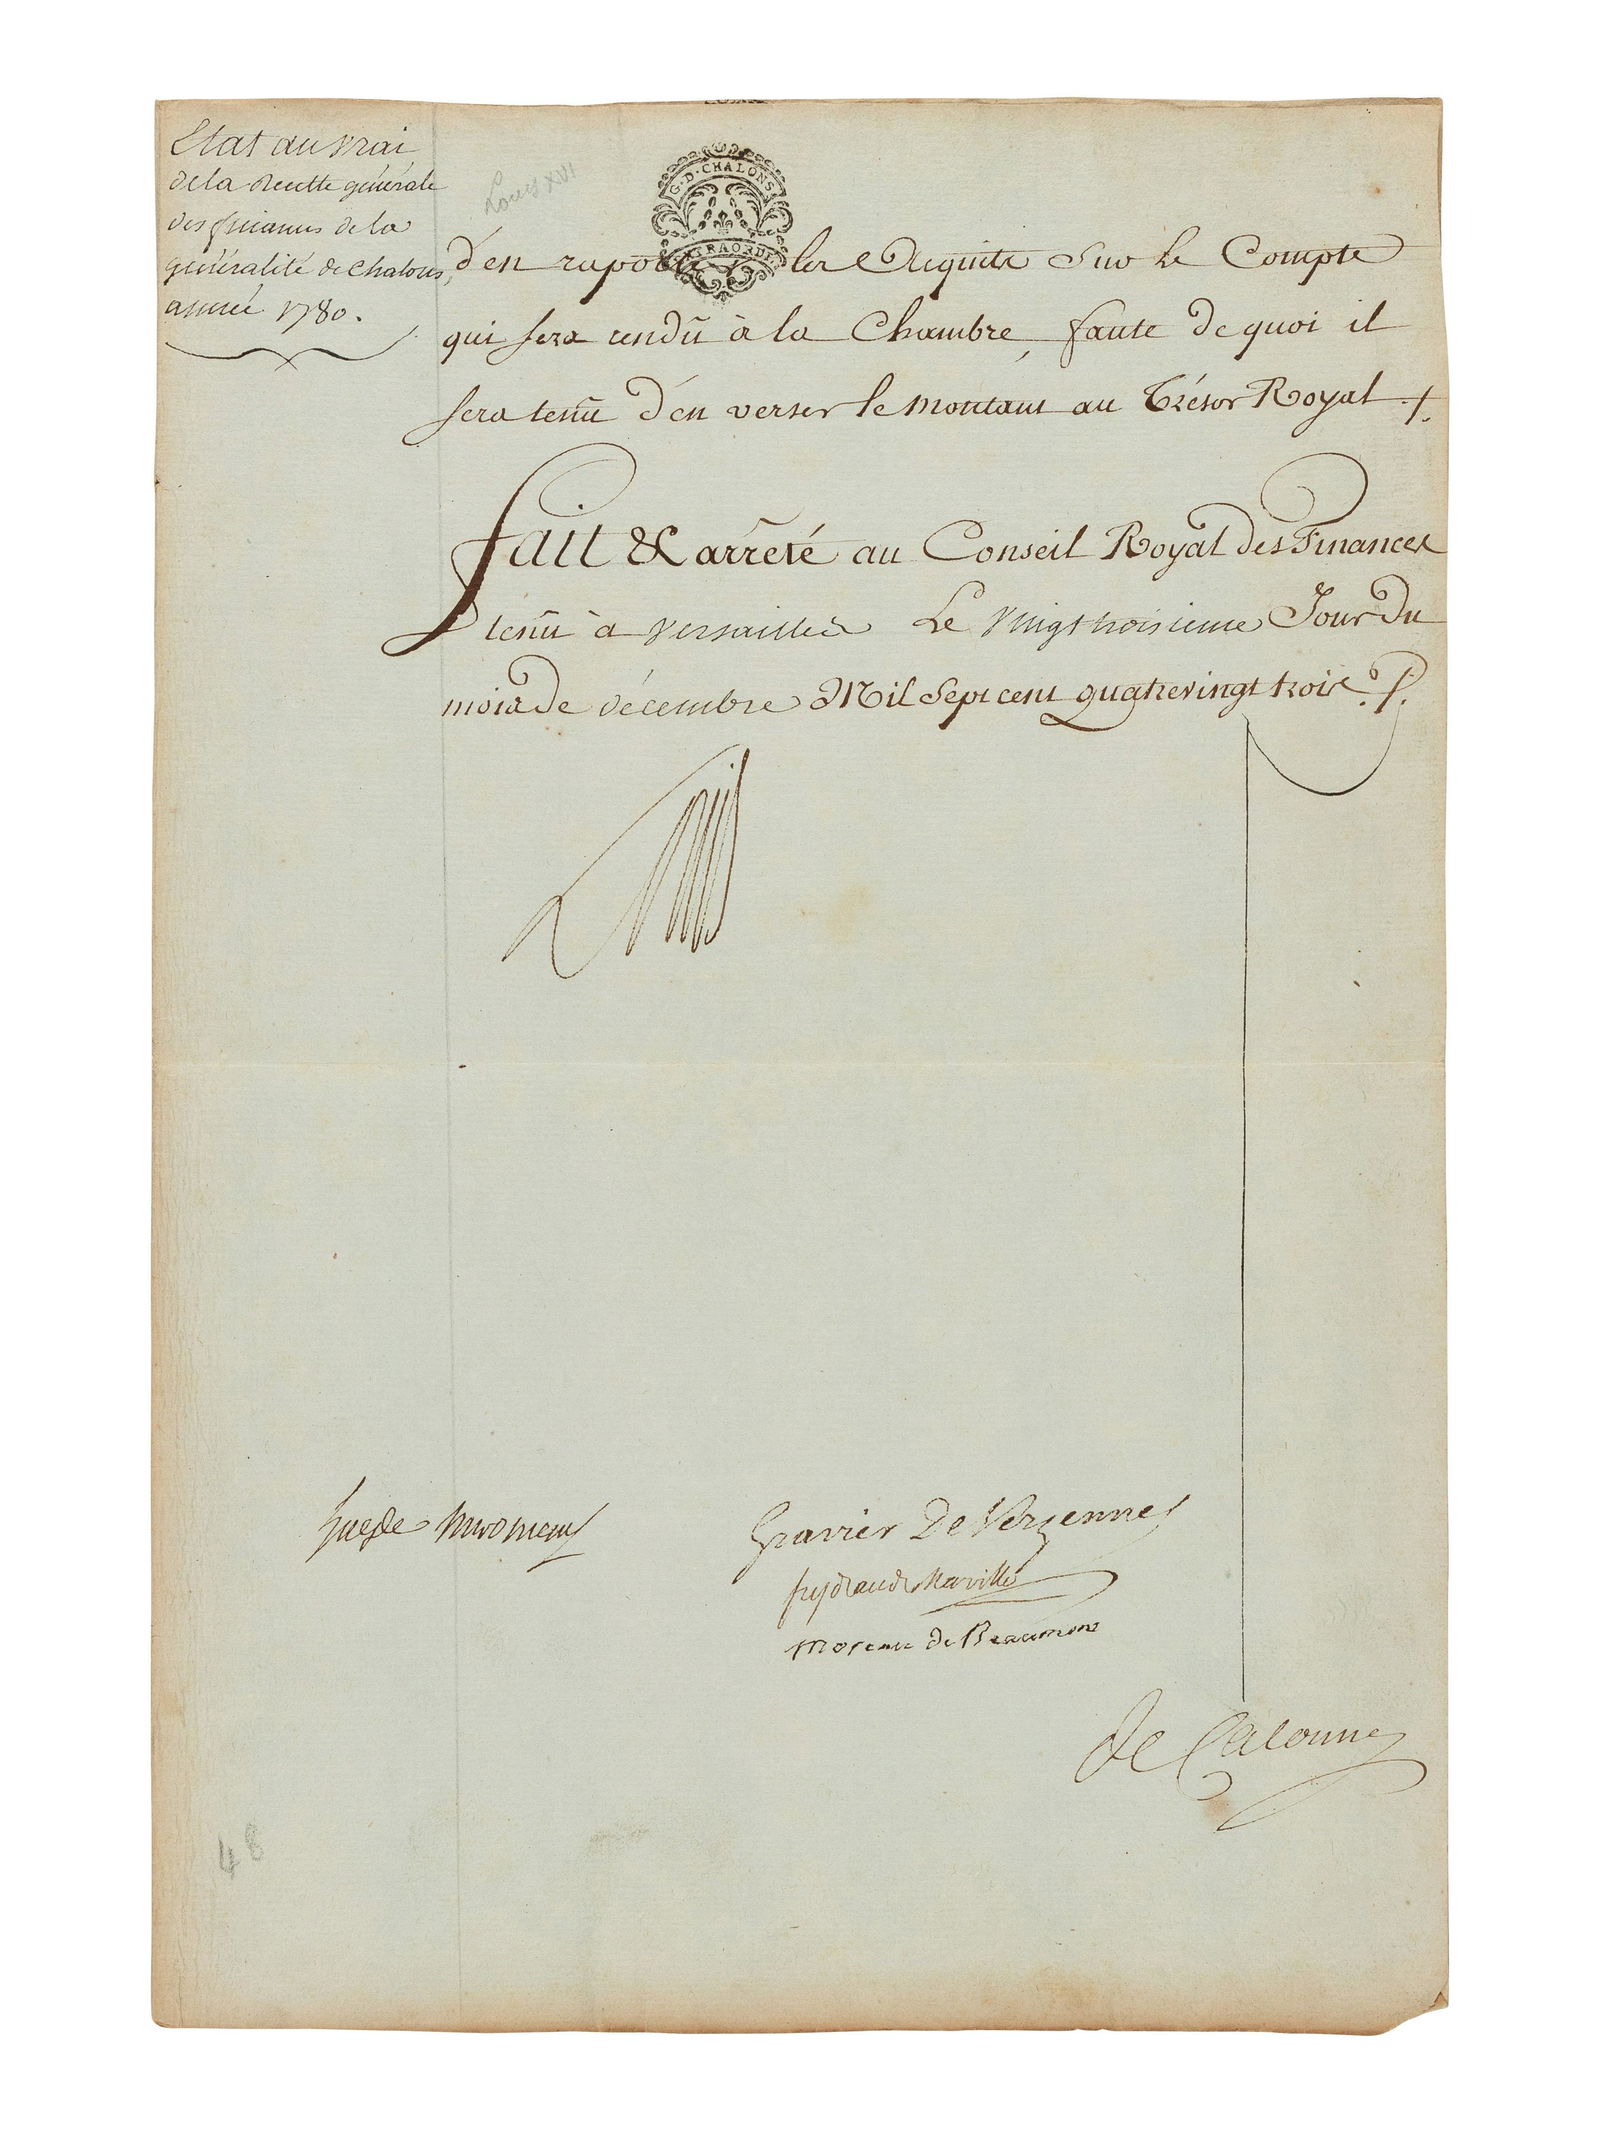 Etat au vrai
de la Recette générale
des finances de la
généralité de Chalons,
année 1780.
Louis XVI
G·D·CHALONS
EXTRAORD
d'en raporter les Acquits Sur le Compte
qui sera rendû à la Chambre, faute de quoi il
sera tenû d'en verser le montant au Trésor Royal
fait & arrêté au Conseil Royal des Finances
tenû à Versailles Le Vingt troisieme Jour du
mois de décembre Mil Sept cent quatrevingt trois
Louis
hue de Miromenil
Gravier De Vergennes
feydeau de Marville
Moreau de Beaumont
de Calonne
48